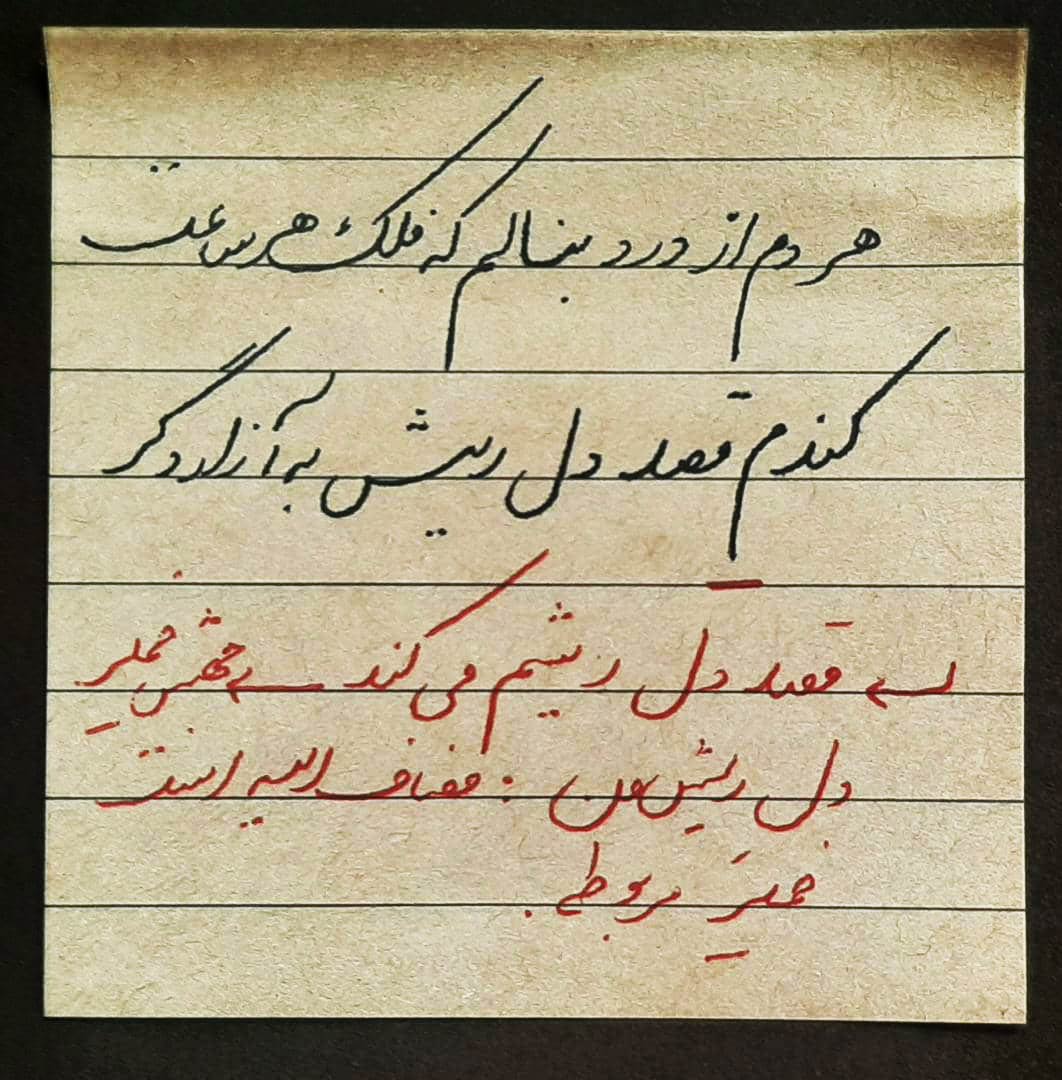 هر دم از درد بنالم که فلک هر ساعت
کندم قصد دل ریش به آزار دگر
ــے قصد دل ریشم می کند ــے جهش ضمیر
دل ریش من : مضاف الیه است
ضمیر مربوطے .